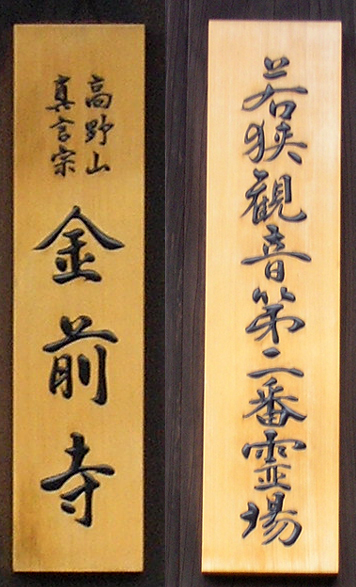 若狭観音第二番霊場
高野山
真言宗
金前寺